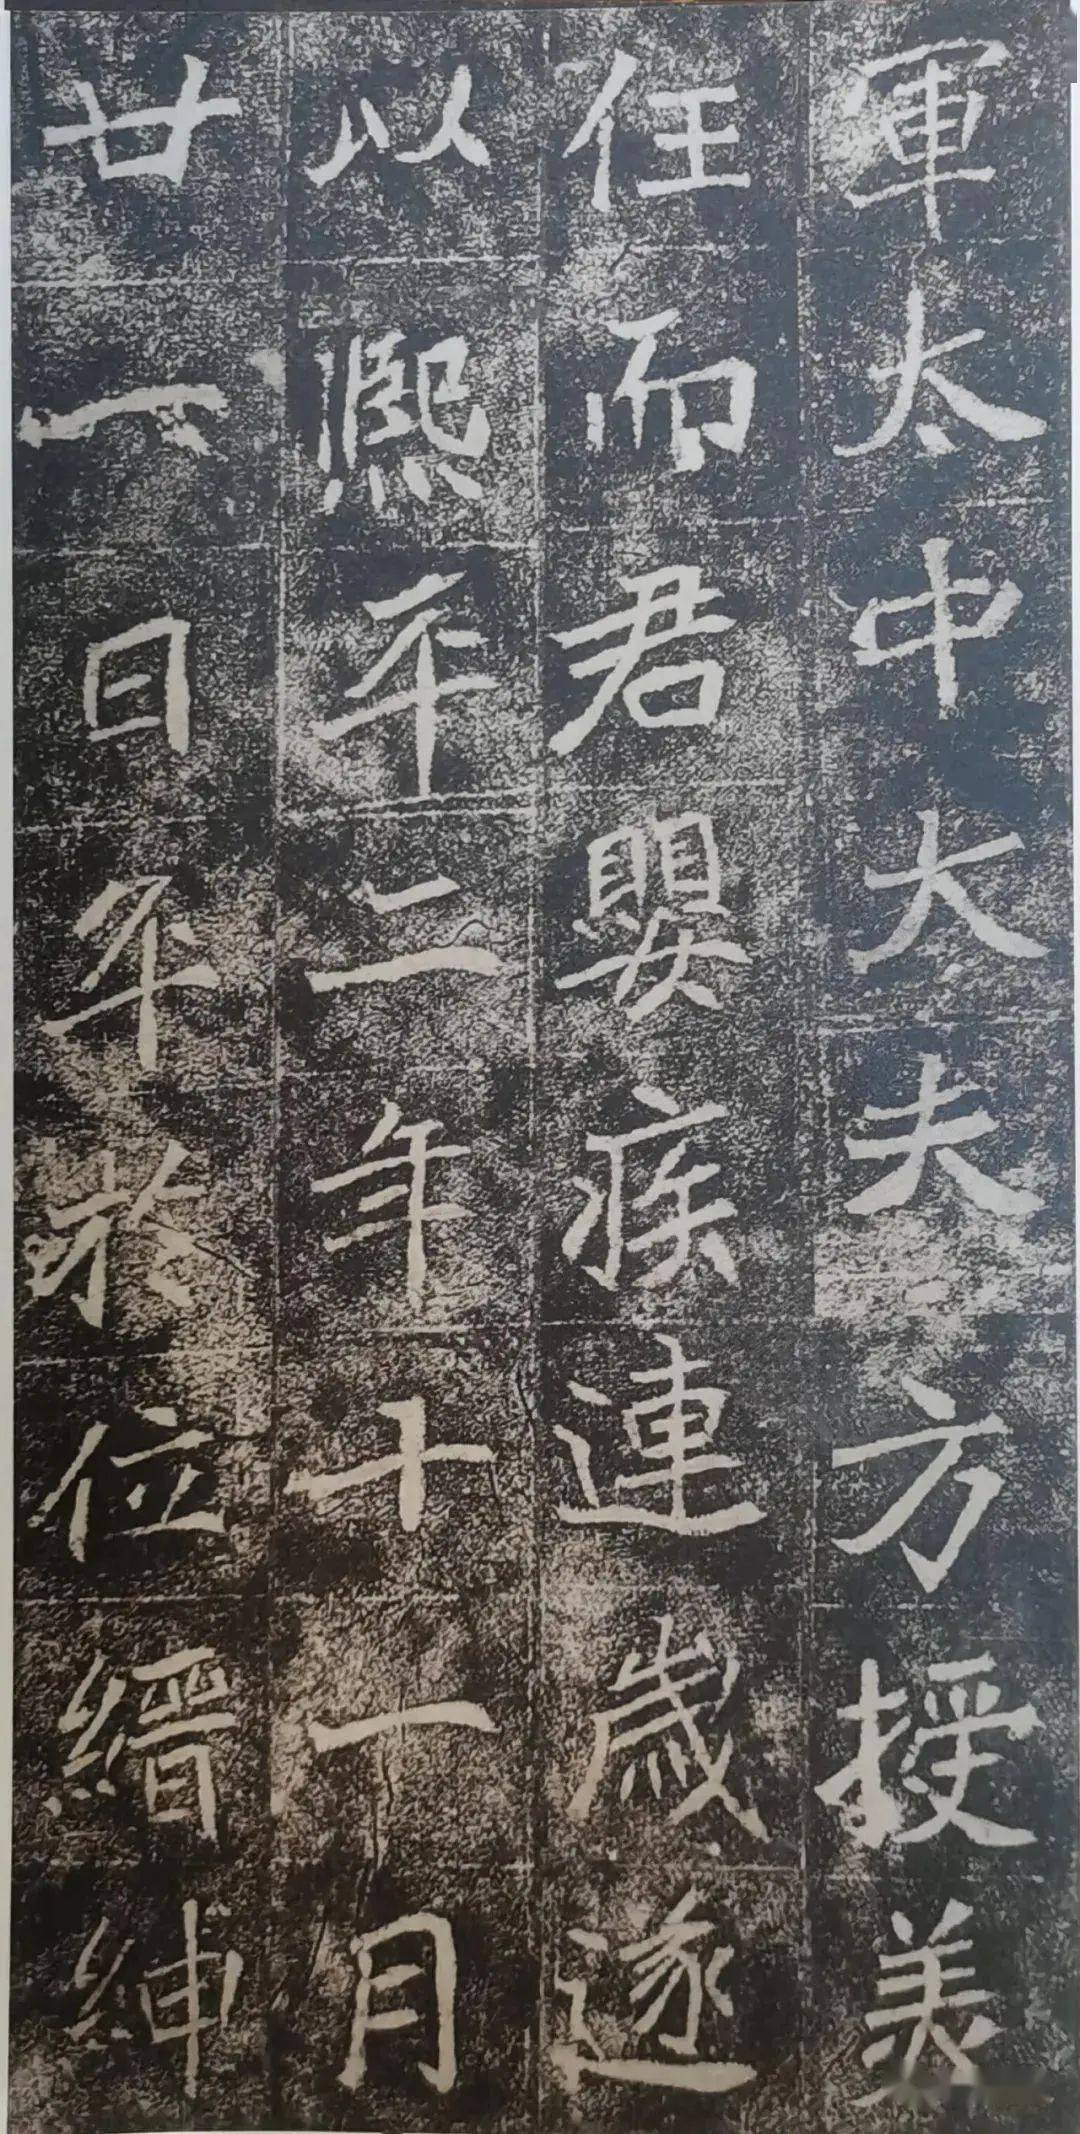 軍太中大夫方授美
任而君嬰疾連歲遂
以熈平二年十一月
廿一日卒於位縉紳